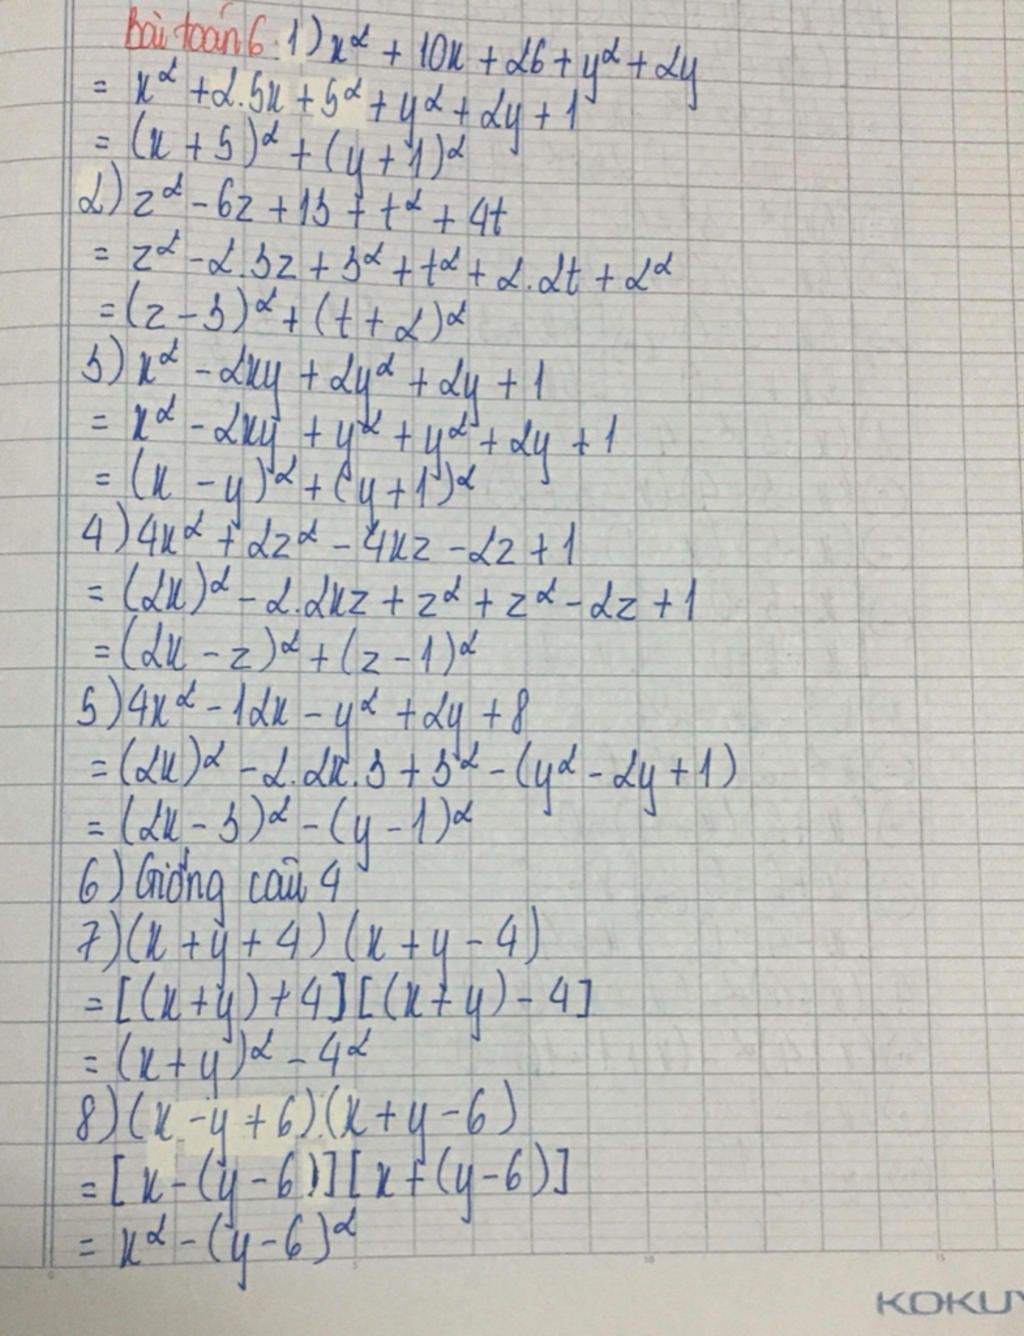 Bài toán 6: 1) x² + 10x + 26 + y² + 2y
= x² + 2.5x + 5² + y² + 2y + 1
= (x + 5)² + (y + 1)²
2) z² - 6z + 13 + t² + 4t
= z² - 2.3z + 3² + t² + 2.2t + 2²
= (z - 3)² + (t + 2)²
3) x² - 2xy + 2y² + 2y + 1
= x² - 2xy + y² + y² + 2y + 1
= (x - y)² + (y + 1)²
4) 4x² + 2z² - 4xz - 2z + 1
= (2x)² - 2.2xz + z² + z² - 2z + 1
= (2x - z)² + (z - 1)²
5) 4x² - 12x - y² + 2y + 8
= (2x)² - 2.2x.3 + 3² - (y² - 2y + 1)
= (2x - 3)² - (y - 1)²
6) Giống câu 4
7) (x + y + 4) (x + y - 4)
= [(x + y) + 4] [(x + y) - 4]
= (x + y)² - 4²
8) (x - y + 6).(x + y - 6)
= [x - (y - 6)] [x + (y - 6)]
= x² - (y - 6)²
5 10 15
KOKUY